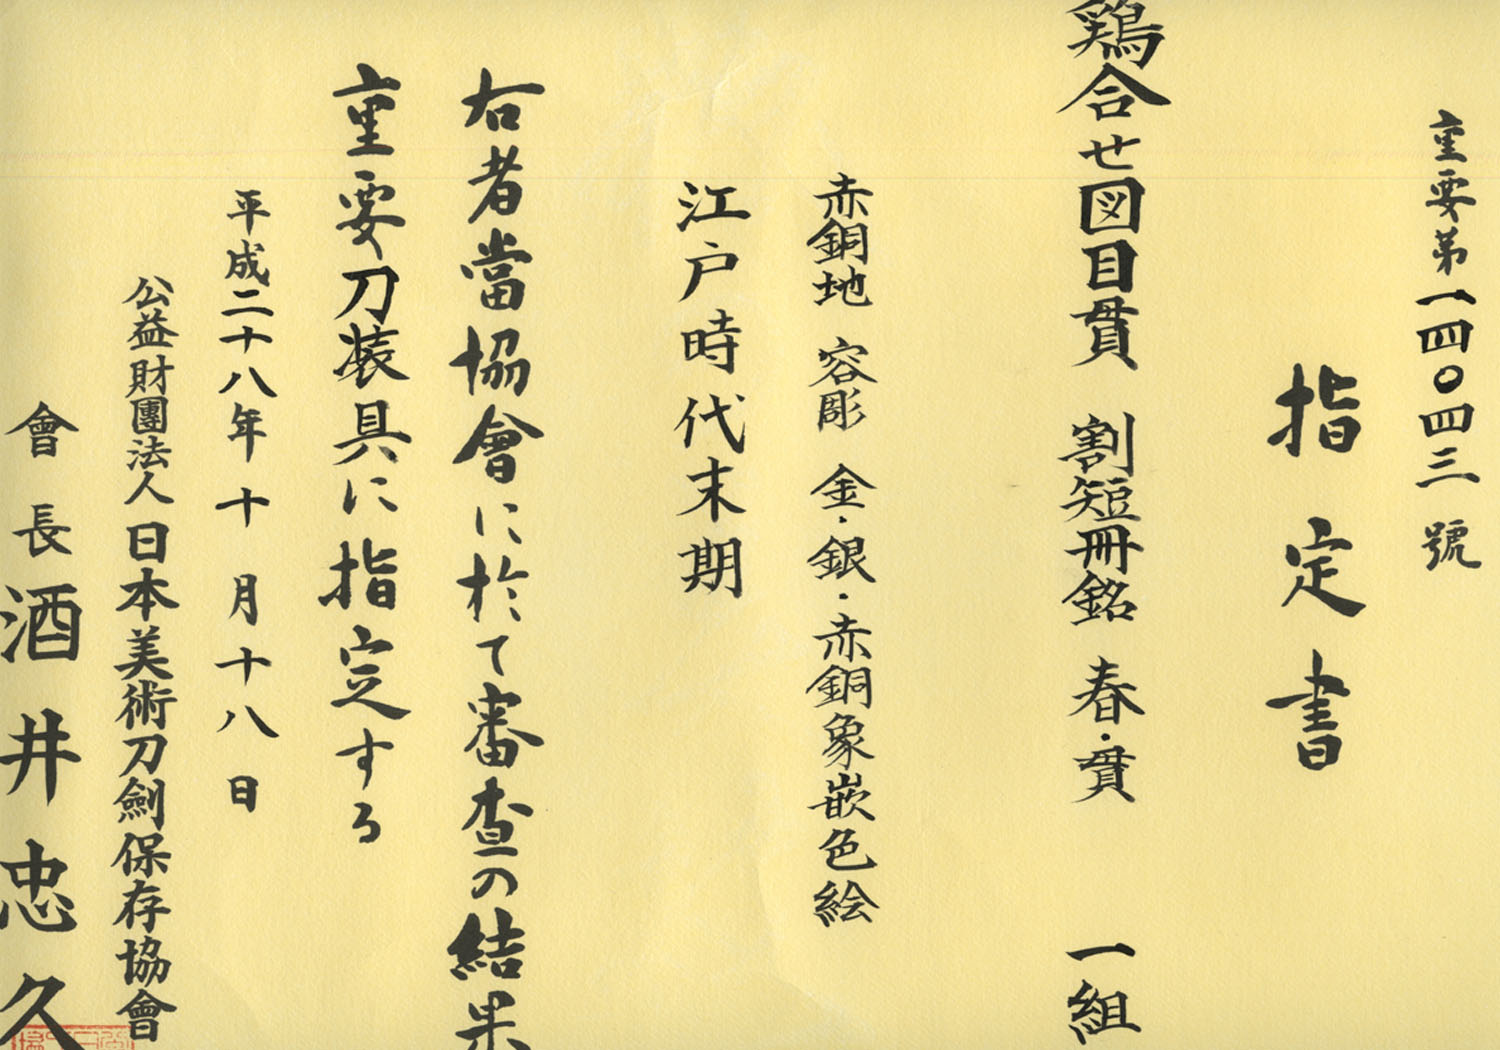 重要第一四〇四三號
指定書
鶏合せ図目貫 割短冊銘 春・貫 一組
赤銅地 容彫 金・銀・赤銅象嵌色絵
江戸時代末期
右者當協會に於て審査の結果
重要刀装具に指定する
平成二十八年十月十八日
公益財團法人日本美術刀劍保存協會
會長酒井忠久